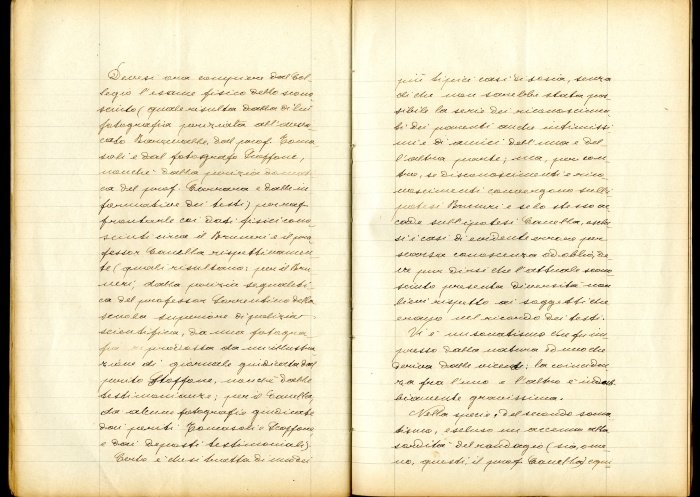 Devesi ora compiere dal Col-
legio l'esame fisico dello scono-
sciuto (quale risulta dalla di lui
fotografia periziata all'avvo-
cato dal prof. Coma-
soli e dal fotografo Stoffone,
nonchè dalla perizia
ca del prof. Carrara e dalle in-
formative dei testi) per raf-
frontarle coi dati fisici cono-
sciuti circa il Bruneri e il pro-
fessor Canella rispettivamen-
te (quali risultano: per il Bru-
neri, dalla perizia segnaleti-
ca del professor Sorrentino della
scuola superiore di polizia
scientifica, da una fotogra-
fia riprodotta da un'illustra-
zione di giornale giudicata dal
perito Stoffone, nonchè dalle
testimonianze; per il Canella,
da alcune fotografie giudicate
dai periti Comasoli e Stoffone
e dai deposti testimoniali).
Certo è che si tratta di uno dei
più tipici casi di sosia, senza
di che non sarebbe stata pos-
sibile la serie dei riconoscimen-
ti dei parenti anche intimissi-
mi e di amici dell'una e del-
l'altra parte; ma, per con-
tro, se disconoscimenti e rico-
noscimenti convergono sull'i-
potesi Bruneri e se lo stesso ac-
cade sull'ipotesi Canella, esclu-
si i casi di evidente errore per
scarsa conoscenza od oblio, de-
ve pur dirsi che l'attuale scono-
sciuto presenta diversità non
lievi rispetto ai soggetti che
erano nel ricordo dei testi.
Vi è un somatismo che fu im-
presso dalla natura ed uno che
deriva dalle vicende; la coinciden-
za fra l'uno e l'altro è indub-
biamente gravissima.
Nella specie, del secondo soma-
tismo, escluso un accenno alla
sordità del randagio (sia, o me-
no, questi, il prof. Canella) ogni